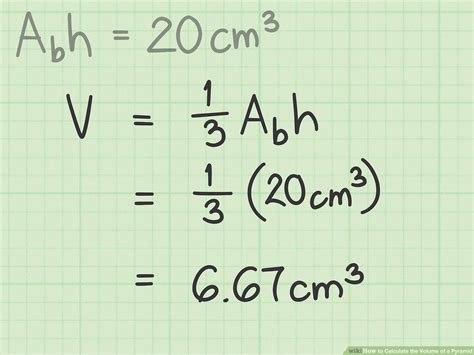 A_b h = 20 cm³
V = 1/3 A_b h
= 1/3 (20 cm³)
= 6.67 cm³
wiki How to Calculate the Volume of a Pyramid